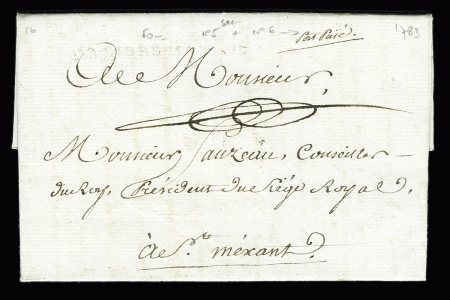 16 50 - n° 5 + n° 6 → Port Payé. 1783
A Monsieur,
Monsieur Sauzeau, Conseiller
du Roy, Président du Siége Royal,
à St. méxant.